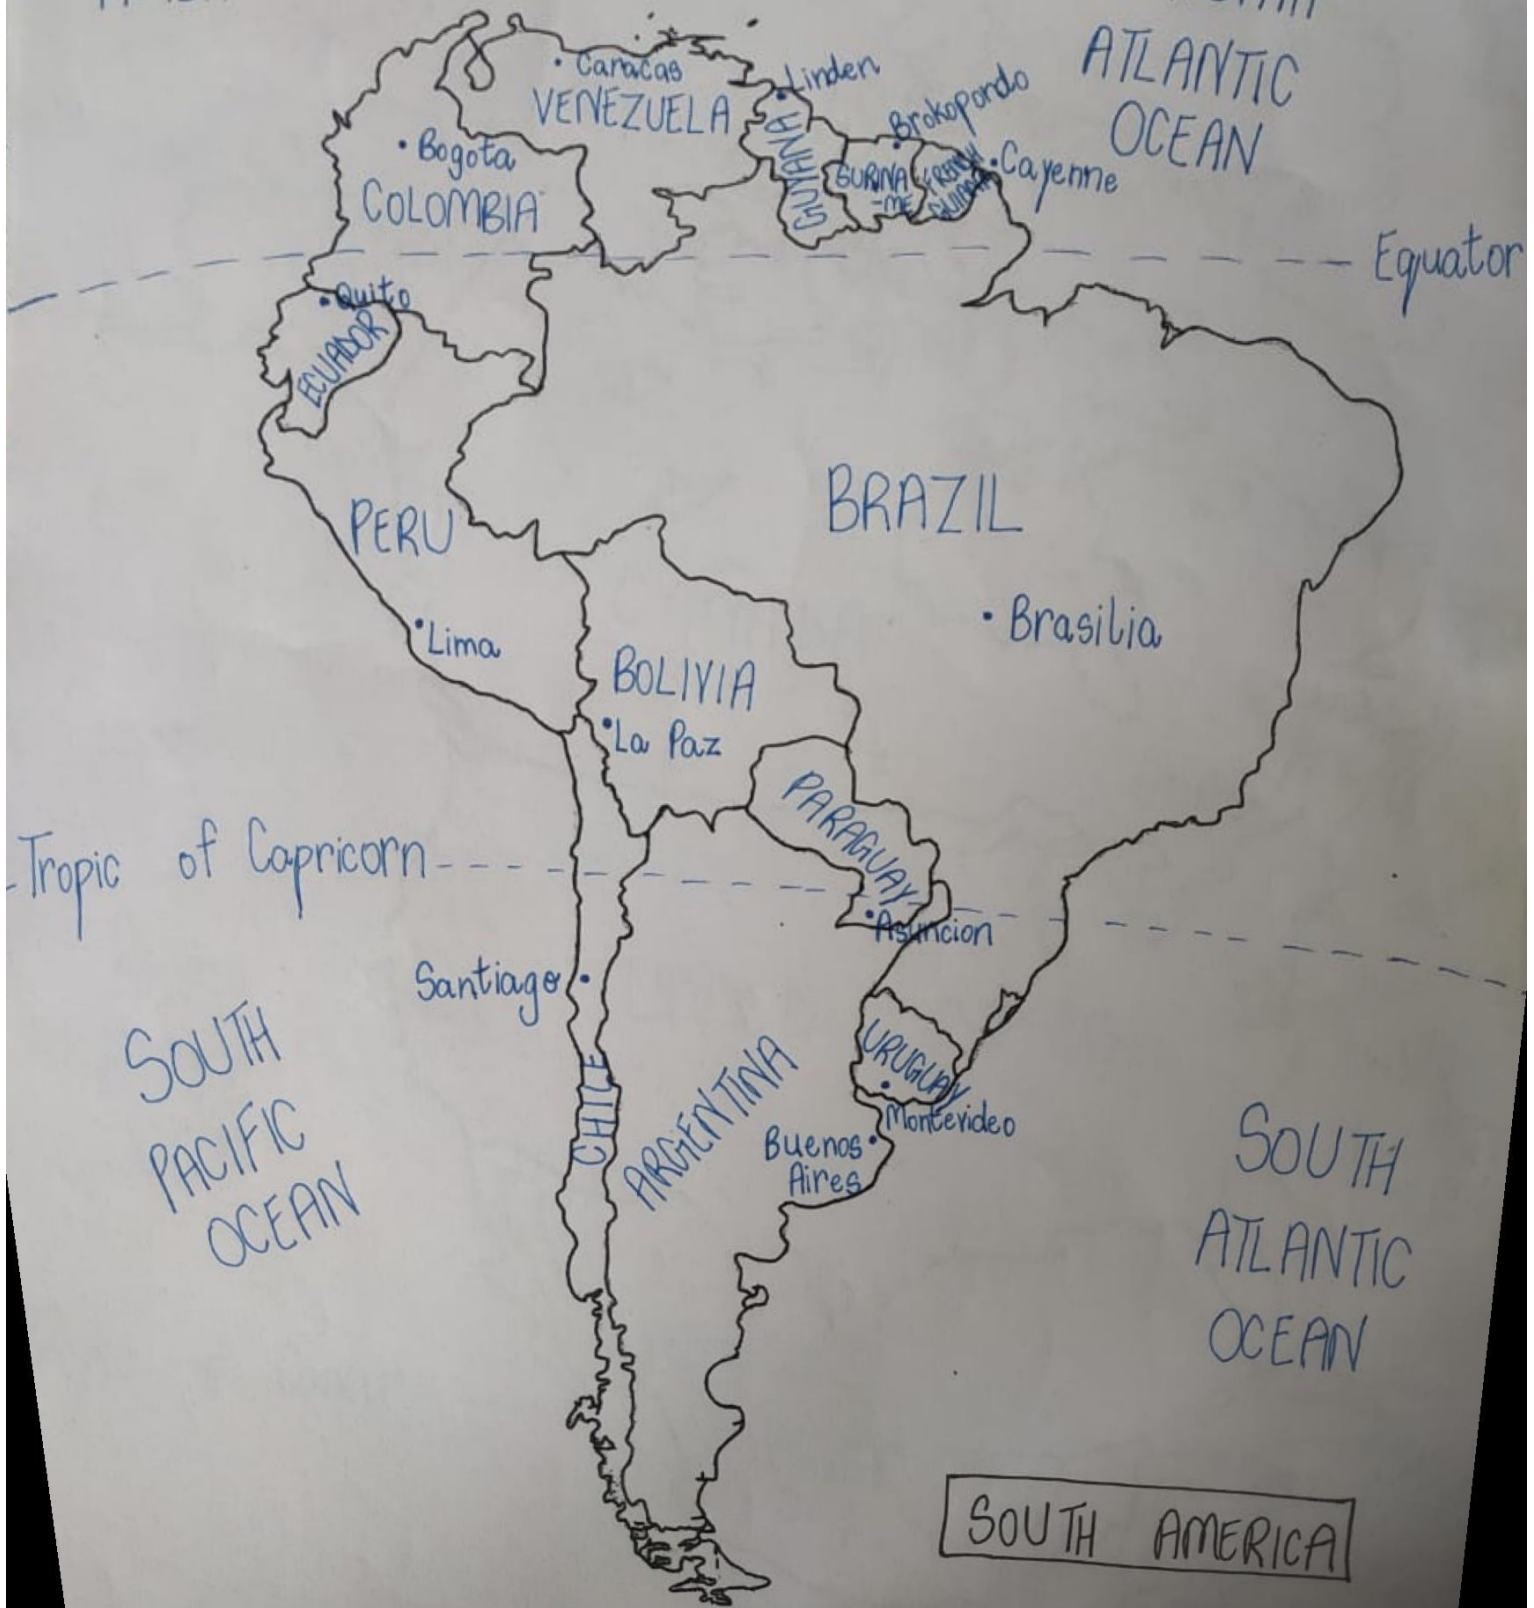 ATLANTIC
OCEAN
Caracas
VENEZUELA
Linden
Brokopondo
GUYANA
Bogota
COLOMBIA
SURINA
-ME
FRENCH
GUIANA
Cayenne
Equator
Quito
ECUADOR
BRAZIL
PERU
Brasilia
Lima
BOLIVIA
La Paz
PARAGUAY
Tropic of Capricorn
Asuncion
Santiago
SOUTH
PACIFIC
OCEAN
URUGUAY
Montevideo
CHILE
ARGENTINA
Buenos
Aires
SOUTH
ATLANTIC
OCEAN
SOUTH AMERICA